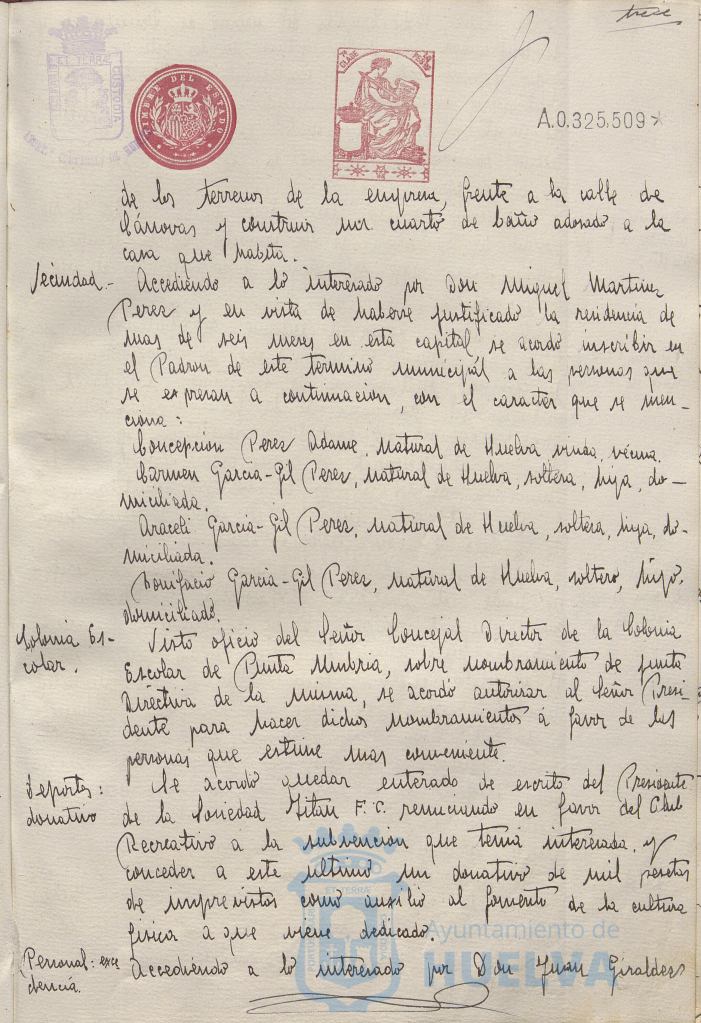 trece
ET TERRÆ CUSTODIA
TIMBRE DEL ESTADO
CLASE
A.0.325,509*
de los terrenos de la empresa, frente a la calle de
Cánovas y construir un cuarto de baño adosado a la
casa que habita.
Vecindad.- Accediendo a lo interesado por Don Miguel Martinez
Perez y en vista de haberse justificado la residencia de
mas de seis meses en esta capital, se acordó inscribir en
el Padron de este término municipal a las personas que
se expresan a continuacion, con el caracter que se men-
ciona:
Concepcion Perez Adame, natural de Huelva viuda, vecina.
Carmen Garcia-Gil Perez, natural de Huelva, soltera, hija, do-
miciliada.
Araceli Garcia-Gil Perez, natural de Huelva, soltera, hija, do-
miciliada.
Bonifacio Garcia-Gil Perez, natural de Huelva, soltero, hijo,
domiciliado.
Colonia Es-
colar.
Visto oficio del Señor Concejal Director de la Colonia
Escolar de Punta Umbria, sobre nombramiento de junta
Directiva de la misma, se acordó autorizar al Señor Presi-
dente para hacer dichos nombramientos á favor de las
personas que estime mas conveniente.
Deportes:
donativo
Se acordó quedar enterado de escrito del Presidente
de la Sociedad Titan F.C. renuciando en favor del Club
Recreativo a la subvencion que tenia interesada, y
conceder a este ultimo un donativo de mil pesetas
de imprevistos como auxilio al fomento de la cultura
fisica a que viene dedicado.
Personal: exce
dencia.
Accediendo a lo interesado por Don Juan Giraldez
Ayuntamiento de
HUELVA